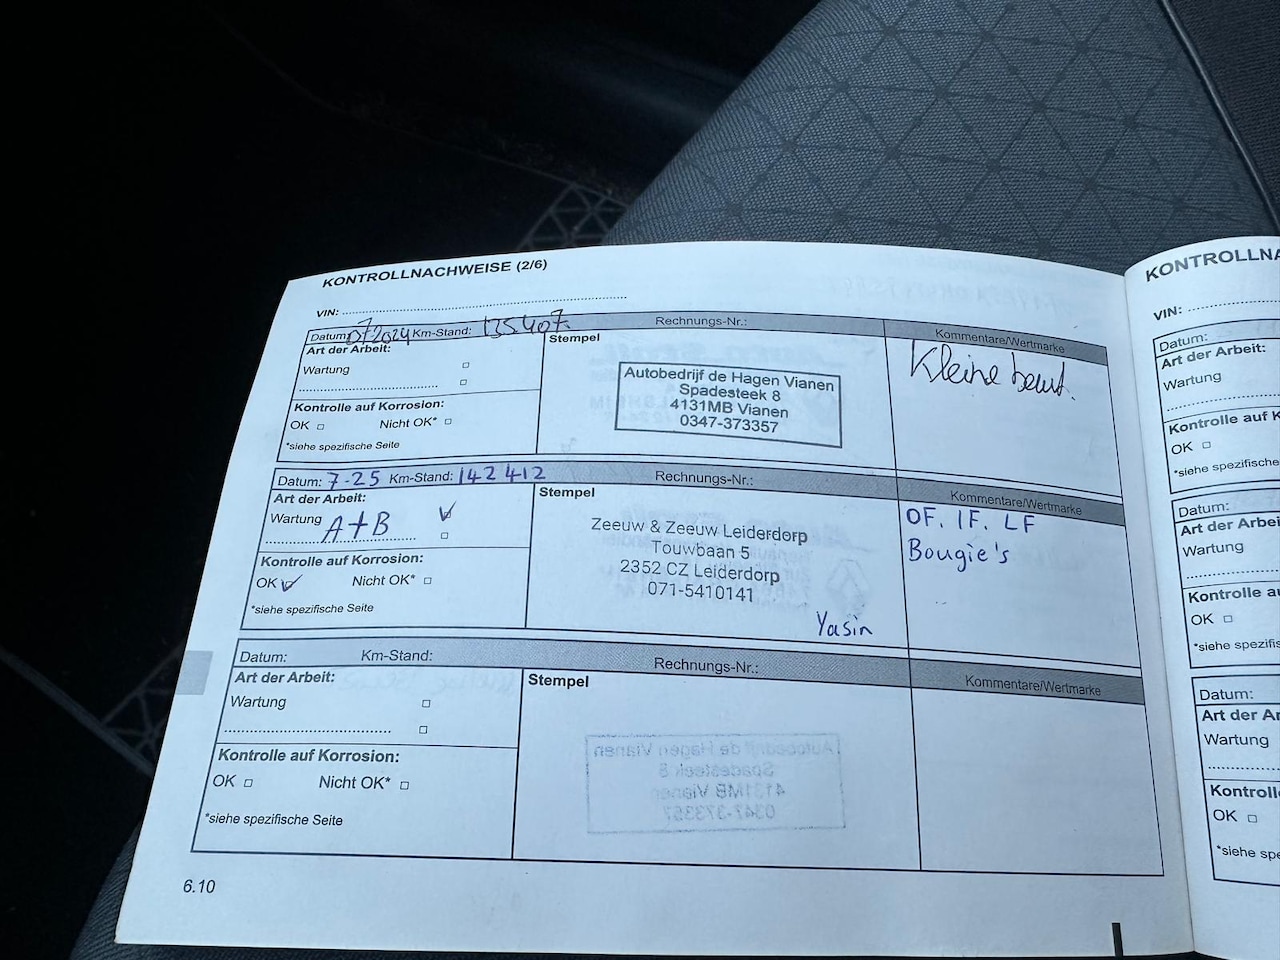 KONTROLLNACHWEISE (2/6)
VIN:
Datum: 072024 Km-Stand: 135407. Rechnungs-Nr.: Kommentare/Wertmarke
Art der Arbeit:
Wartung
Stempel
Autobedrijf de Hagen Vianen
Spadesteek 8
4131MB Vianen
0347-373357
Kleine beurt.
Kontrolle auf Korrosion:
OK Nicht OK*
*siehe spezifische Seite
Datum: 7-25 Km-Stand: 142412 Rechnungs-Nr.: Kommentare/Wertmarke
Art der Arbeit:
Wartung A+B
Stempel
Zeeuw & Zeeuw Leiderdorp
Touwbaan 5
2352 CZ Leiderdorp
071-5410141
Yasin
OF. IF. LF
Bougie's
Kontrolle auf Korrosion:
OK Nicht OK*
*siehe spezifische Seite
Datum: Km-Stand: Rechnungs-Nr.: Kommentare/Wertmarke
Art der Arbeit:
Wartung
Stempel
Kontrolle auf Korrosion:
OK Nicht OK*
*siehe spezifische Seite
6.10
KONTROLLNA
VIN:
Datum:
Art der Arbeit:
Wartung
Kontrolle auf K
OK
*siehe spezifische
Datum:
Art der Arbei
Wartung
Kontrolle a
OK
*siehe spezifis
Datum:
Art der Ar
Wartung
Kontroll
OK
*siehe spe